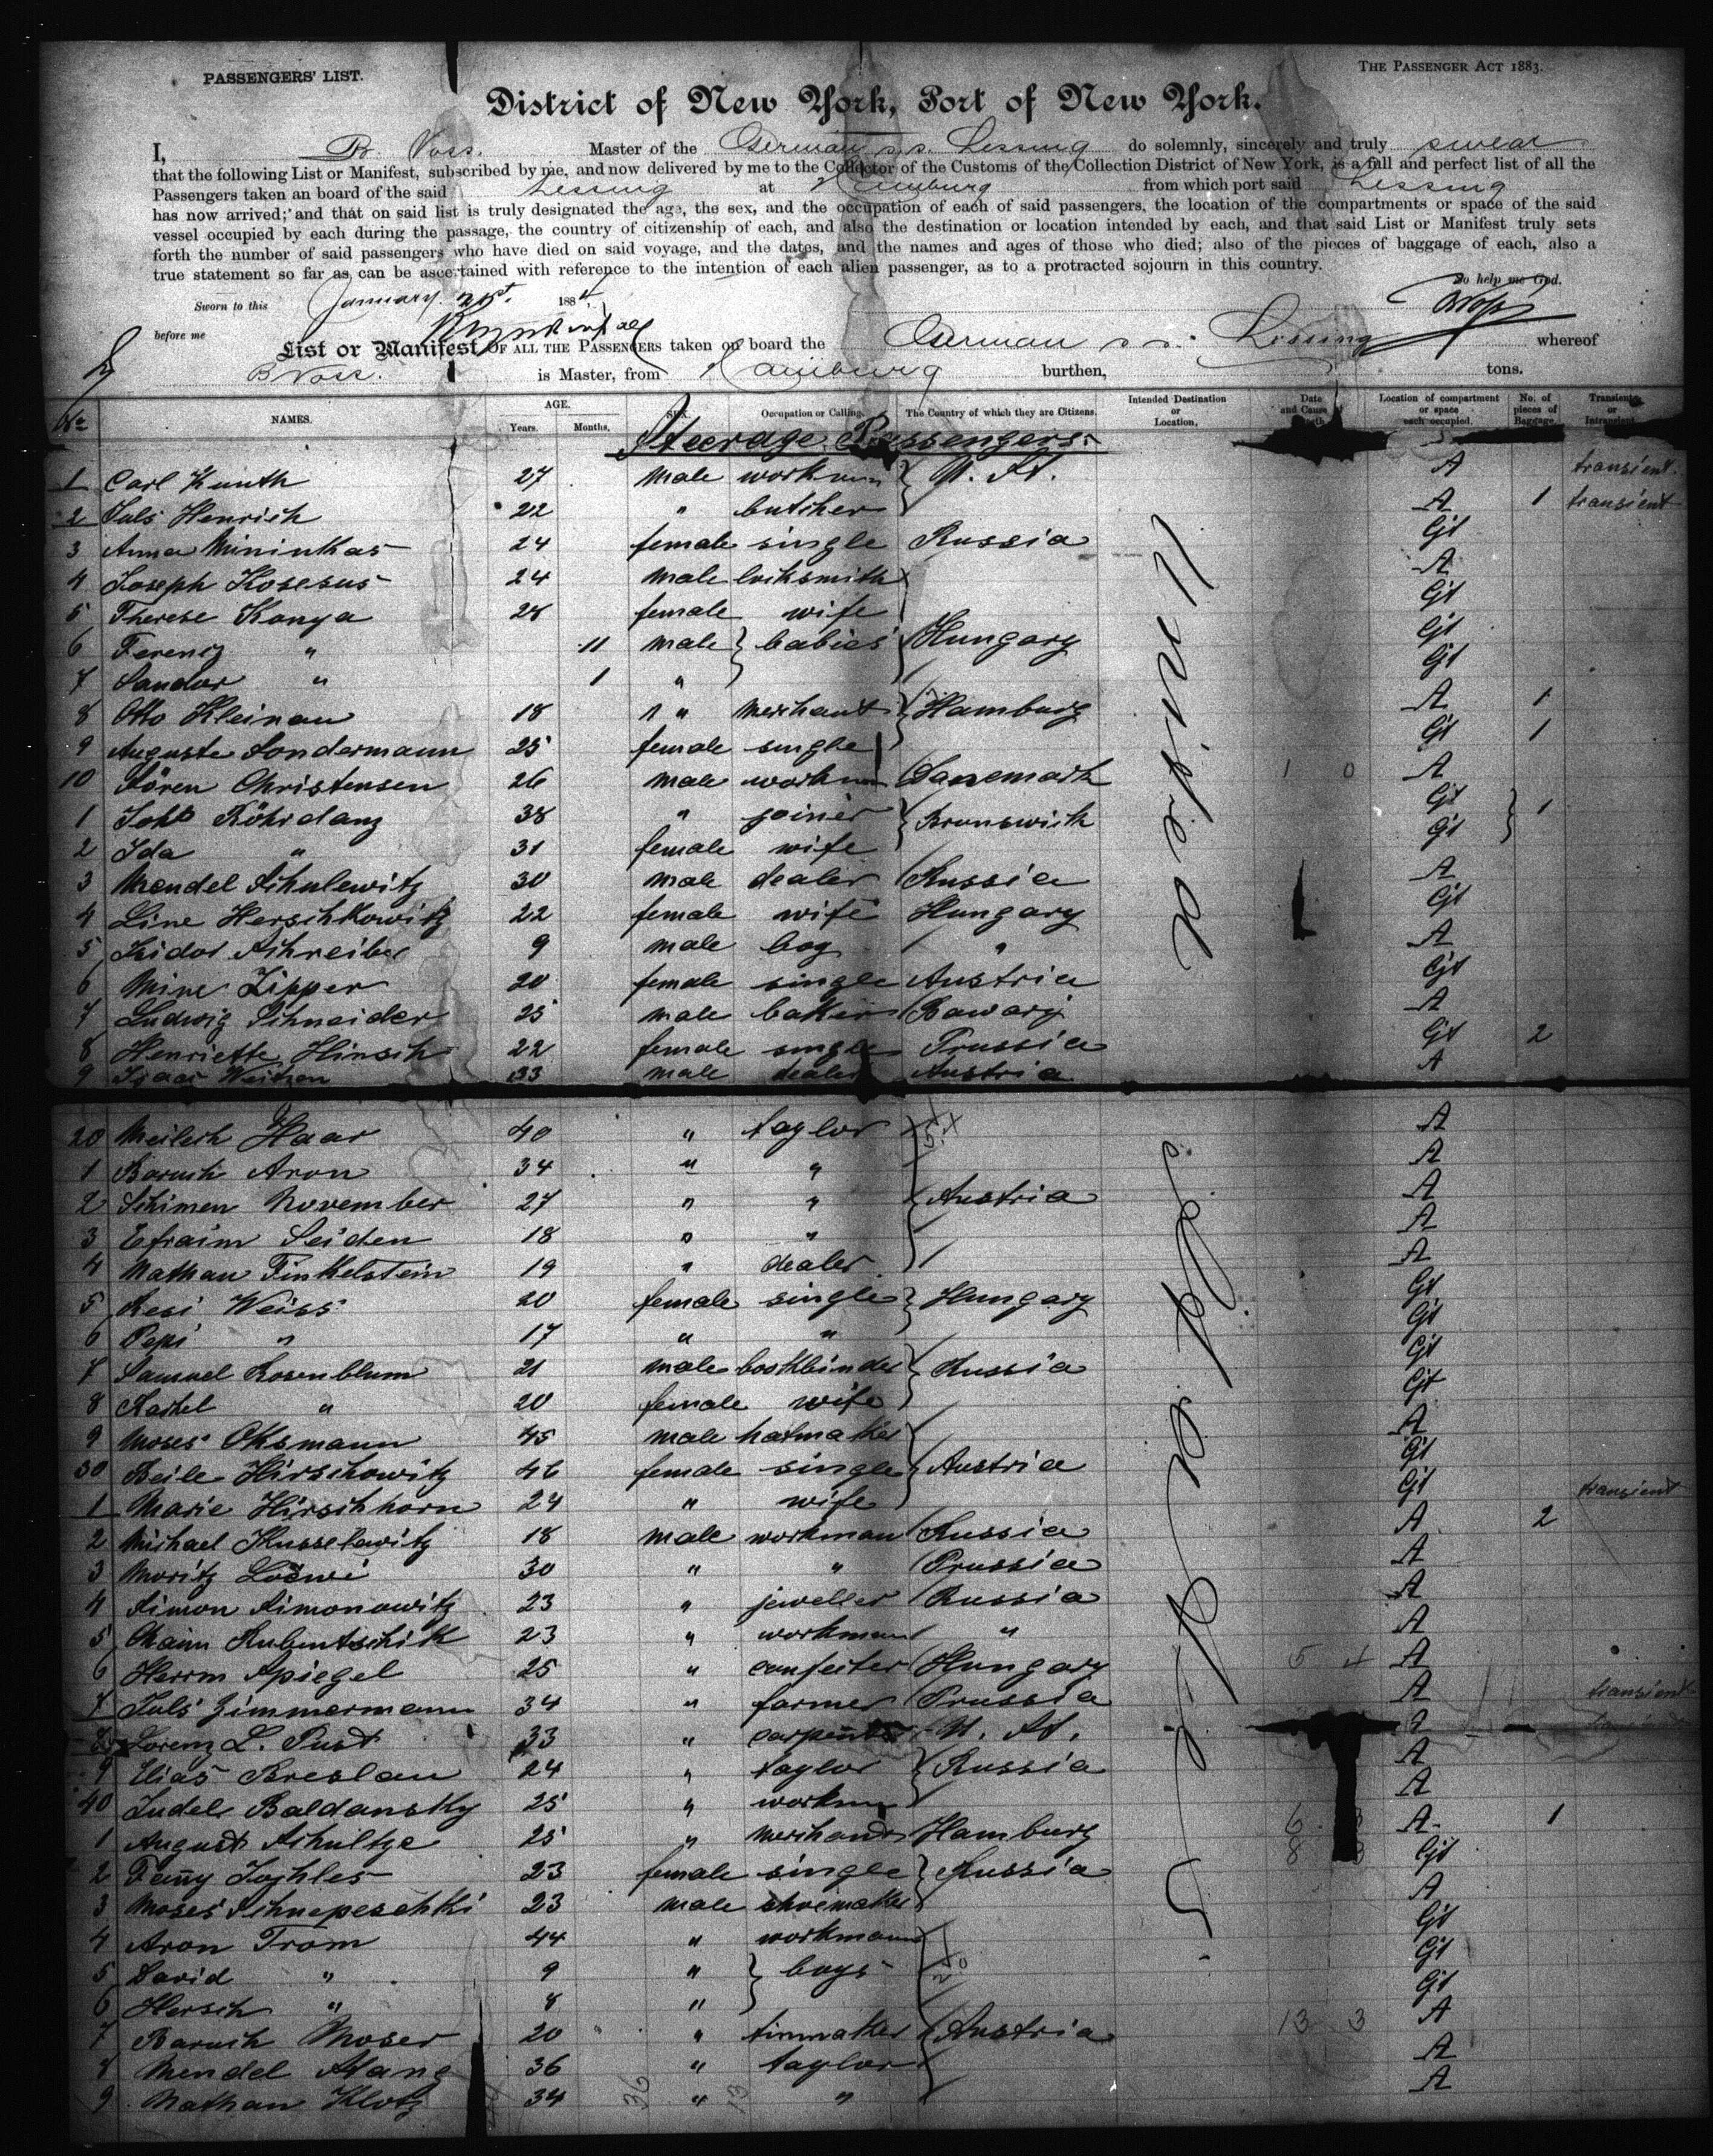 PASSENGERS' LIST.
THE PASSENGER ACT 1883.
District of New York, Port of New York.
I, B. Voss. Master of the German s.s. Lessing do solemnly, sincerely and truly swear
that the following List or Manifest, subscribed by me, and now delivered by me to the Collector of the Customs of the Collection District of New York, is a full and perfect list of all the
Passengers taken an board of the said Lessing at Hamburg from which port said Lessing
has now arrived; and that on said list is truly designated the age, the sex, and the occupation of each of said passengers, the location of the compartments or space of the said
vessel occupied by each during the passage, the country of citizenship of each, and also the destination or location intended by each, and that said List or Manifest truly sets
forth the number of said passengers who have died on said voyage, and the dates, and the names and ages of those who died; also of the pieces of baggage of each, also a
true statement so far as can be ascertained with reference to the intention of each alien passenger, as to a protracted sojourn in this country.
So help me God.
Sworn to this January 21st. 1884.
before me
List or Manifest OF ALL THE PASSENGERS taken on board the German s.s. Lessing whereof
B Voss. is Master, from Hamburg burthen, tons.
No NAMES. AGE. Years. Months, SEX. Occupation or Calling. The Country of which they are Citizens. Intended Destination or Location, Date and Cause Location of compartment or space each occupied. No. of pieces of Baggage. Transient or Intransient
Steerage Passengers.
1 Carl Kunth 27 male workman U. St. A transient.
2 Juls Henrich 22 " butcher A 1 transient
3 Anna Mininkas 24 female single Russia Gt
4 Joseph Kosesus 24 male locksmith A
5 Therese Kanya 28 female wife Gt
6 Ferencz " 11 male babies Hungary Gt
7 Sandor " 1 " Gt
8 Otto Kleinau 18 " merchant Hamburg A 1
9 Auguste Sondermann 25 female single Gt 1
10 Sören Christensen 26 male workman Danemark 1 0 A
1 Joh Röhrdanz 38 " joiner Brunswick Gt 1
2 Ida " 31 female wife Gt
3 Mendel Schulewitz 30 male dealer Russia A
4 Line Herschkowitz 22 female wife Hungary Gt
5 Isidor Schreiber 9 male boy " A
6 Mine Zipper 20 female single Austria Gt
7 Ludwig Schneider 25 male baker Bawary A
8 Henriette Hinsch 22 female single Prussia Gt 2
9 Isaac Weitzen 33 male dealer Austria A
20 Meilech Haar 40 " taylor A
1 Baruch Aron 34 " " A
2 Schimen November 27 " " Austria A
3 Efraim Seiden 18 " " A
4 Nathan Finkelstein 19 " dealer A
5 Resi Weiss 20 female single Hungary Gt
6 Pepi " 17 " " Gt
7 Samuel Rosenblum 21 male bookbinder Russia Gt
8 Rachel " 20 female wife Gt
9 Moses Oksmann 45 male hatmaker A
30 Beile Hirschowitz 46 female single Austria Gt
1 Marie Hirschhorn 24 " wife Gt transient
2 Michael Kusselewitz 18 male workman Russia A 2
3 Moritz Loewi 30 " " Prussia A
4 Simon Simonowitz 23 " jeweller Russia A
5 Chaim Rubentschik 23 " workman " A
6 Herrm Spiegel 25 " confeiter Hungary 5 4 A
7 Juls Zimmermann 34 " farmer Prussia A transient
8 Lorenz L. Pust 33 " carpenter U. St. A
9 Elias Breslau 24 " taylor Russia A
40 Judel Baldansky 25 " workman A
1 August Schultze 25 " merchand Hamburg 6 3 A 1
2 Fanny Jochles 23 female single Russia 8 3 Gt
3 Moses Schnepeschki 23 male shoemaker A
4 Aron Trom 44 " workman Gt
5 David " 9 " boys Gt
6 Hersch " 8 " Gt
7 Baruch Moser 20 " tinmaker Austria 13 3 A
8 Mendel Stang 36 " taylor A
9 Nathan Klotz 34 " " A
36 13